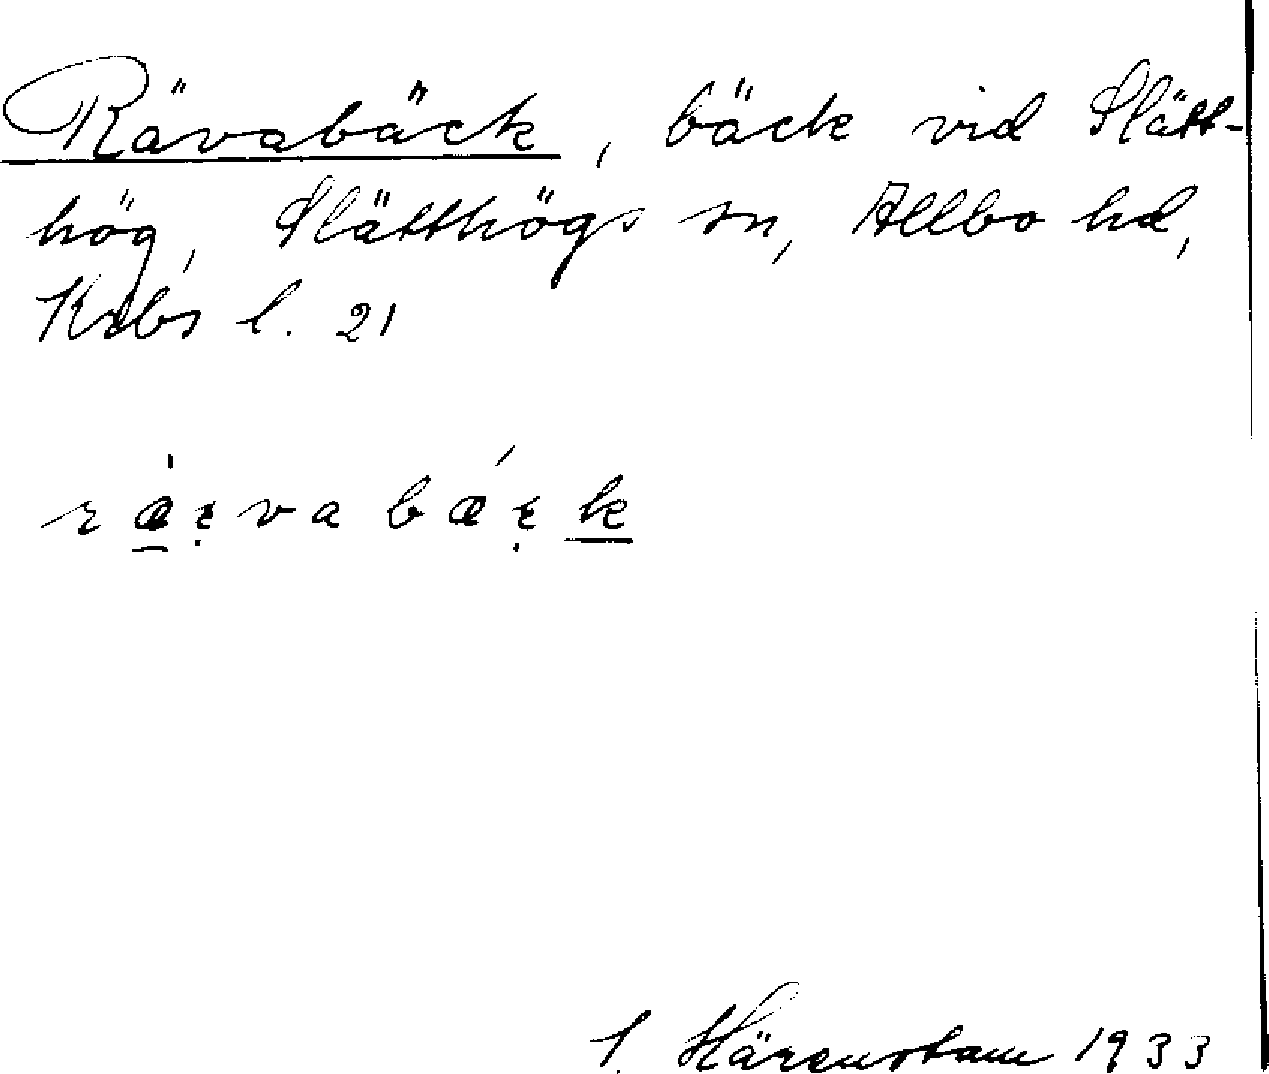 Rävabäck, bäck vid Slätt-
hög, Slätthögs sn, Allbo hd,
Krbs l. 21
ræ̀ꞓva bǽꞓk
Härenstam 1933